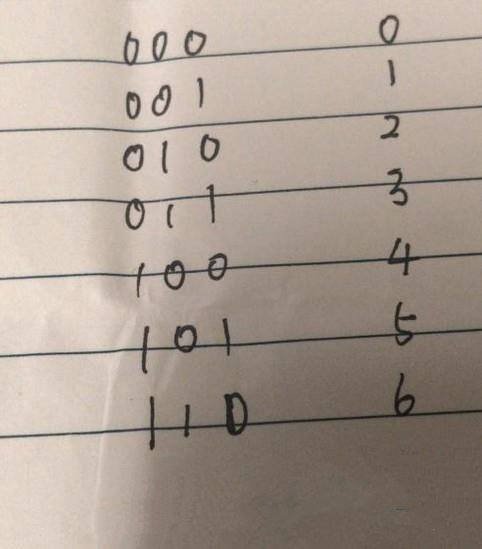 000 0
001 1
010 2
011 3
100 4
101 5
110 6